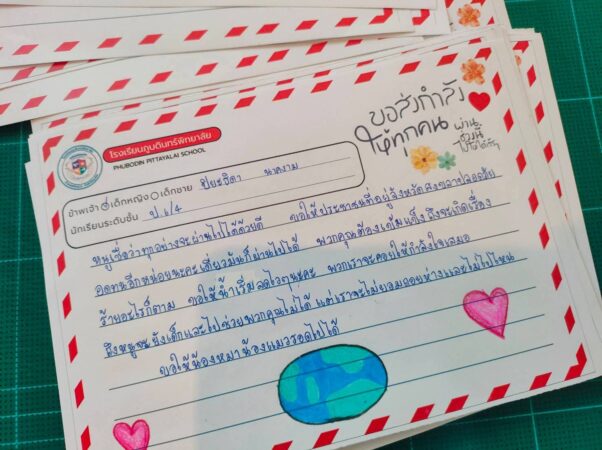 โรงเรียนภูบดินทร์พิทยาลัย
PHUBODIN PITTAYALAI SCHOOL
ขอส่งกำลัง
ให้ทุกคน
ผ่าน
ช่วงนี้
ไปให้ได้
ข้าพเจ้า เด็กหญิง เด็กชาย ปิยะธิดา นางาม
นักเรียนระดับชั้น ป.6/4
หนูเชื่อว่าทุกอย่างจะผ่านไปได้ด้วยดี ขอให้ประชาชนที่อยู่จังหวัดสงขลาปลอดภัย
อดทนอีกหน่อยนะคะ เดี๋ยวมันก็ผ่านไปได้ พวกคุณต้องเข้มแข็ง ถึงจะเกิดเรื่อง
ร้ายอะไรก็ตาม ขอให้น้ำเริ่มลดไวๆนะคะ พวกเราจะคอยให้กำลังใจเสมอ
ถึงหนูจะยังเด็กและไปช่วยพวกคุณไม่ได้ แต่เราจะไม่ยอมถอยห่างและไม่ไปไหน
ขอให้น้องหมาน้องแมวรอดไปได้